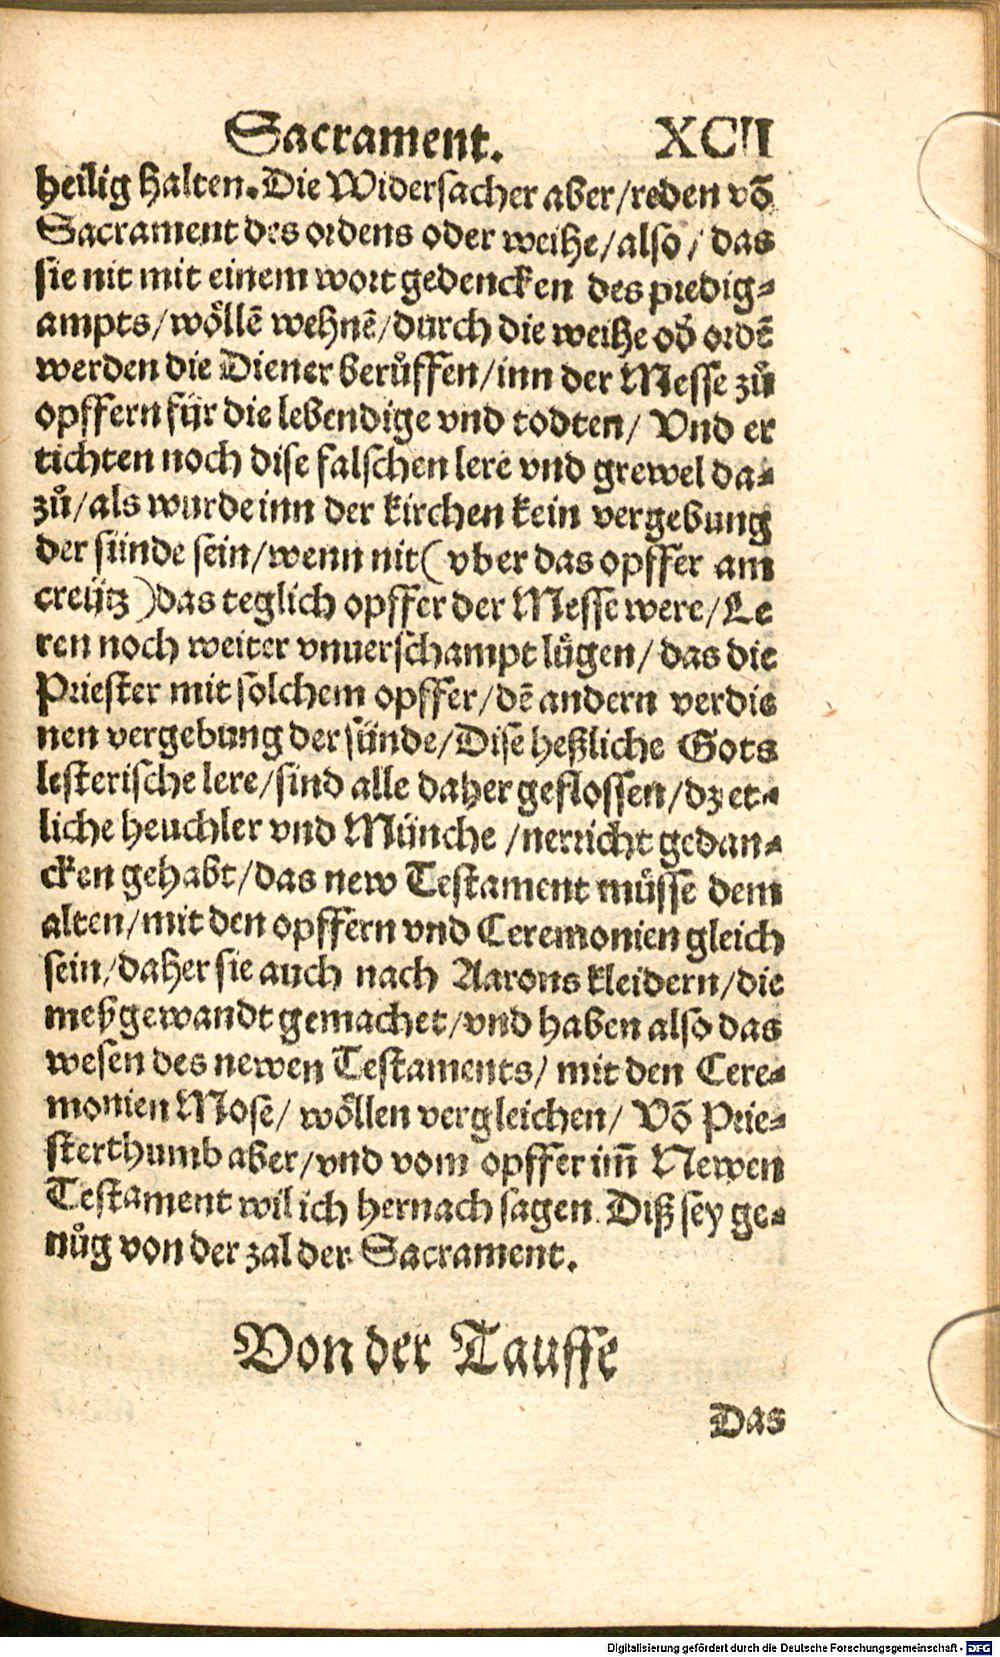 Sacrament. XCII
heilig halten. Die Widersacher aber/reden võ
Sacrament des ordens oder weihe/also/ das
sie nit mit einem wort gedencken des predig-
ampts/wöllẽ wehnẽ/durch die weihe od̕ ordẽ
werden die Diener berůffen/inn der Messe zů
opffern für die lebendige vnd todten/ Vnd er
tichten noch dise falschen lere vnd grewel da-
zů/als wurde inn der kirchen kein vergebung
der sünde sein/wenn nit ( vber das opffer am
creütz )das teglich opffer der Messe were/Le
ren noch weiter vnuerschampt lügen/ das die
Priester mit solchem opffer/dẽ andern verdie
nen vergebung der sünde/Dise heßliche Gots
lesterische lere/sind alle daher geflossen/dz et-
liche heuchler vnd Münche /nerricht gedan-
cken gehabt/das new Testament müsse dem
alten/mit den opffern vnd Ceremonien gleich
sein/daher sie auch nach Aarons kleidern/die
meßgewandt gemachet/vnd haben also das
wesen des newen Testaments/ mit den Cere-
monien Mose/ wöllen vergleichen/ Võ Prie-
sterthumb aber/vnd vom opffer im̃ Newen
Testament wil ich hernach sagen. Diß sey ge-
nůg von der zal der Sacrament.
Von der Tauffe
Das
Digitalisierung gefördert durch die Deutsche Forschungsgemeinschaft - DFG